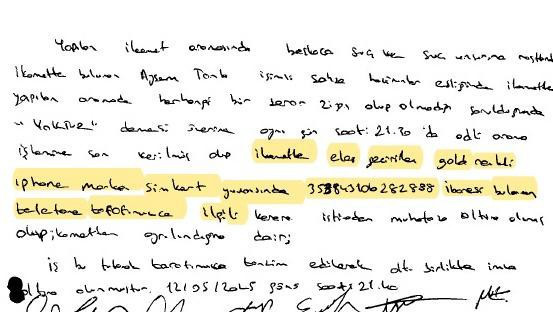 Yapılan ikamet aramasında başkaca suç ve suç unsuruna rastlanıl
ikamette bulunan Aysem isimli şahsa eşliğinde ikamette
yapılan aramada herhangi bir zarar ziyan olup olmadığı sorulduğunda
"YOKTUR" demesi üzerine aynı gün saat: 21.30 'da adli arama
işlemine son verilmiş olup ikamette elde geçirilen gold renkli
iphone marka simkart yuvasında 353843106282888 ibaresi bulunan
telefona tarafımızca ilgili kanun muhafaza altına alınıp
olup ikametten ayrılındığına dair;
iş bu tutanak tarafımızca tanzim edilerek birlikte imza
altına alınmıştır. 12/05/2025 günü saat: 21.40